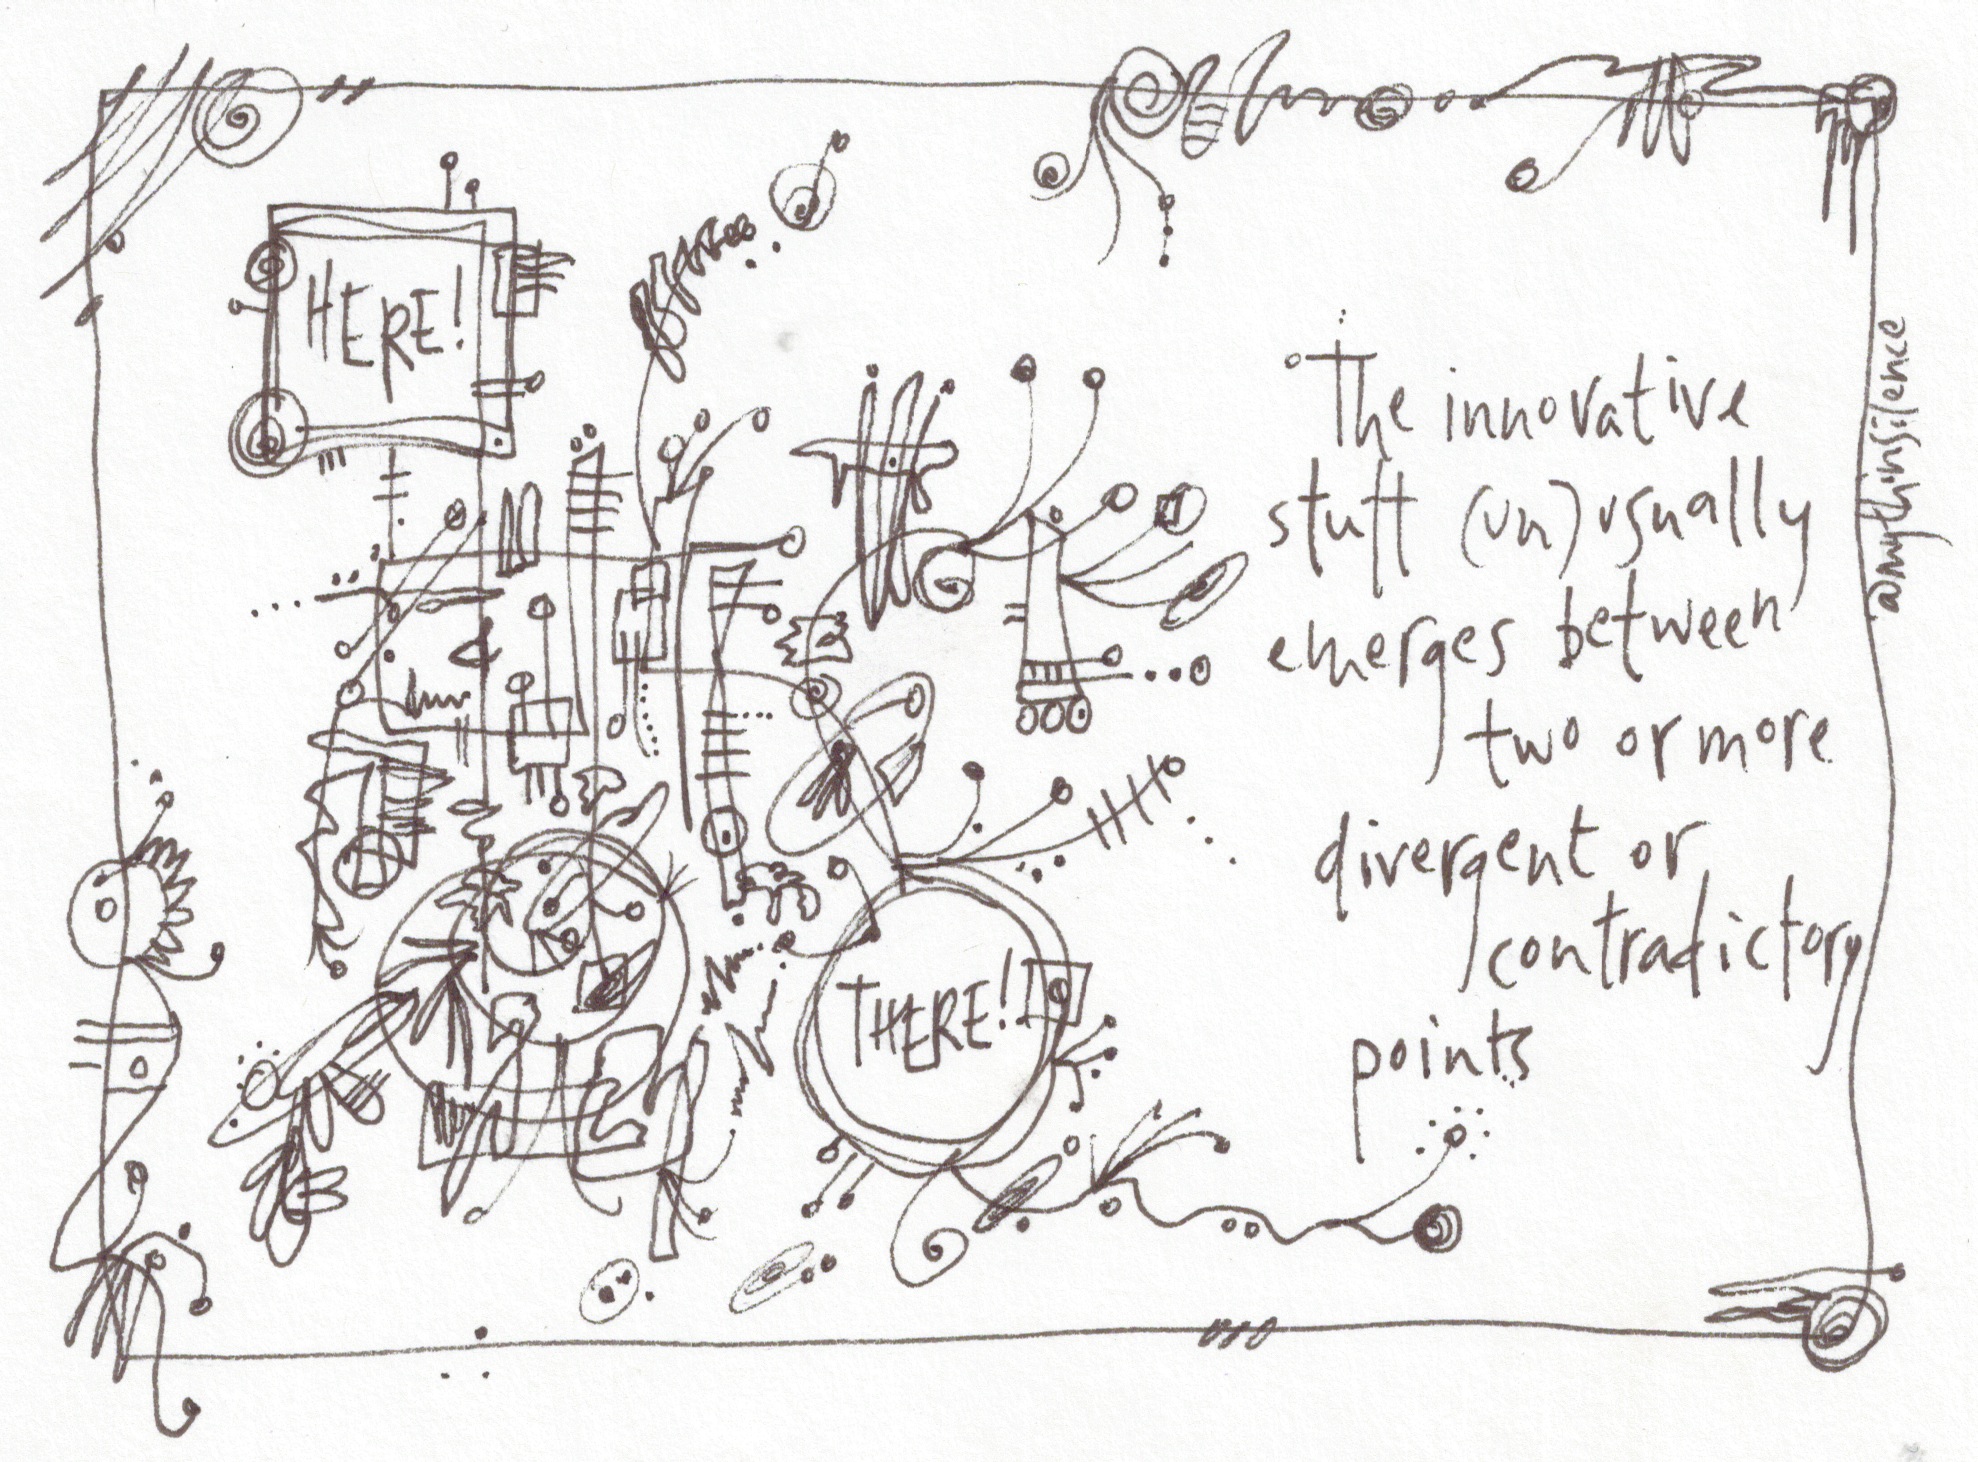 HERE!
THERE!
The innovative
stuff (un)usually
emerges between
two or more
divergent or
contradictory
points
@mythinsilence